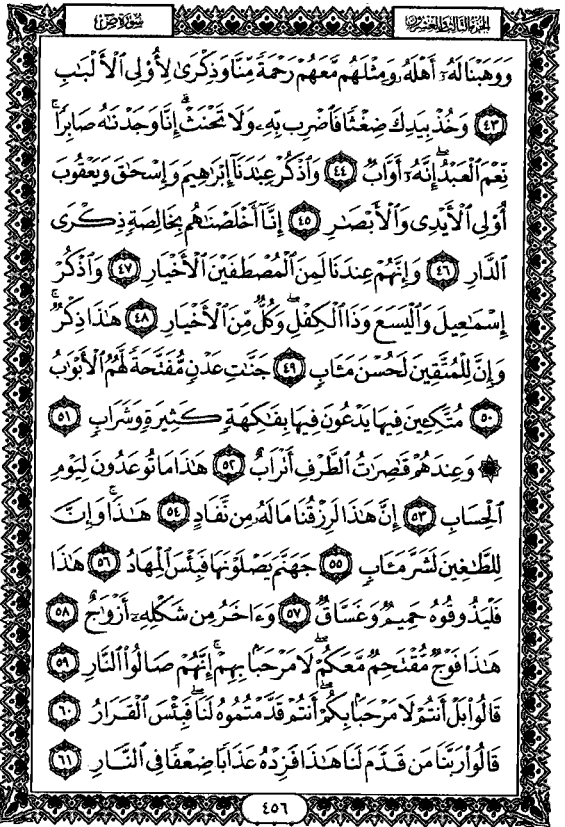 سُورَةُ صٓ
الجزء الثالث والعشرون
وَوَهَبْنَا لَهُۥٓ أَهْلَهُۥ وَمِثْلَهُم مَّعَهُمْ رَحْمَةً مِّنَّا وَذِكْرَىٰ لِأُو۟لِى ٱلْأَلْبَٰبِ
٤٣ وَخُذْ بِيَدِكَ ضِغْثًا فَٱضْرِب بِّهِۦ وَلَا تَحْنَثْ ۗ إِنَّا وَجَدْنَٰهُ صَابِرًا ۚ
نِّعْمَ ٱلْعَبْدُ ۖ إِنَّهُۥٓ أَوَّابٌ ٤٤ وَٱذْكُرْ عِبَٰدَنَآ إِبْرَٰهِيمَ وَإِسْحَٰقَ وَيَعْقُوبَ
أُو۟لِى ٱلْأَيْدِى وَٱلْأَبْصَٰرِ ٤٥ إِنَّآ أَخْلَصْنَٰهُم بِخَالِصَةٍ ذِكْرَى
ٱلدَّارِ ٤٦ وَإِنَّهُمْ عِندَنَا لَمِنَ ٱلْمُصْطَفَيْنَ ٱلْأَخْيَارِ ٤٧ وَٱذْكُرْ
إِسْمَٰعِيلَ وَٱلْيَسَعَ وَذَا ٱلْكِفْلِ ۖ وَكُلٌّ مِّنَ ٱلْأَخْيَارِ ٤٨ هَٰذَا ذِكْرٌ ۚ
وَإِنَّ لِلْمُتَّقِينَ لَحُسْنَ مَـَٔابٍ ٤٩ جَنَّٰتِ عَدْنٍ مُّفَتَّحَةً لَّهُمُ ٱلْأَبْوَٰبُ
٥٠ مُتَّكِـِٔينَ فِيهَا يَدْعُونَ فِيهَا بِفَٰكِهَةٍ كَثِيرَةٍ وَشَرَابٍ ٥١
۞ وَعِندَهُمْ قَٰصِرَٰتُ ٱلطَّرْفِ أَتْرَابٌ ٥٢ هَٰذَا مَا تُوعَدُونَ لِيَوْمِ
ٱلْحِسَابِ ٥٣ إِنَّ هَٰذَا لَرِزْقُنَا مَا لَهُۥ مِن نَّفَادٍ ٥٤ هَٰذَا ۚ وَإِنَّ
لِلطَّٰغِينَ لَشَرَّ مَـَٔابٍ ٥٥ جَهَنَّمَ يَصْلَوْنَهَا فَبِئْسَ ٱلْمِهَادُ ٥٦ هَٰذَا
فَلْيَذُوقُوهُ حَمِيمٌ وَغَسَّاقٌ ٥٧ وَءَاخَرُ مِن شَكْلِهِۦٓ أَزْوَٰجٌ ٥٨
هَٰذَا فَوْجٌ مُّقْتَحِمٌ مَّعَكُمْ ۖ لَا مَرْحَبًۢا بِهِمْ ۚ إِنَّهُمْ صَالُوا۟ ٱلنَّارِ ٥٩
قَالُوا۟ بَلْ أَنتُمْ لَا مَرْحَبًۢا بِكُمْ ۖ أَنتُمْ قَدَّمْتُمُوهُ لَنَا ۖ فَبِئْسَ ٱلْقَرَارُ ٦٠
قَالُوا۟ رَبَّنَا مَن قَدَّمَ لَنَا هَٰذَا فَزِدْهُ عَذَابًا ضِعْفًا فِى ٱلنَّارِ ٦١
٤٥٦